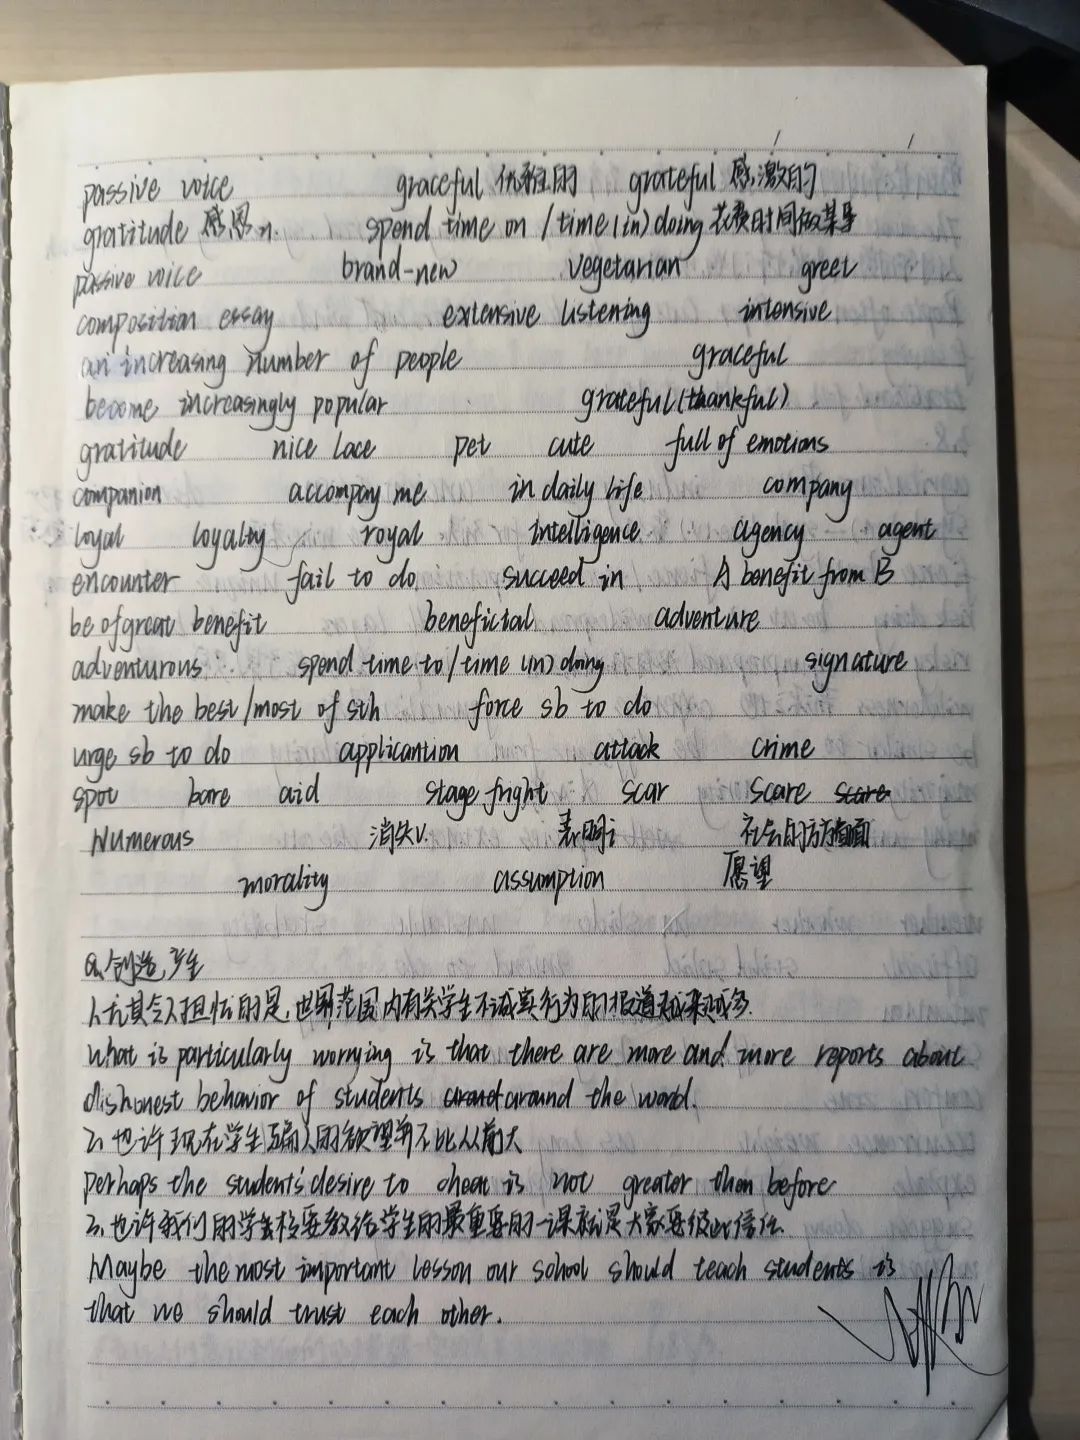 passive voice graceful 优雅的 grateful 感激的
gratitude 感恩 n. spend time on /time (in) doing 花费时间做某事
passive voice brand-new vegetarian greet
composition essay extensive listening intensive
an increasing number of people graceful
become increasingly popular grateful (thankful)
gratitude nice lace pet cute full of emotions
companion accompay me in daily life company
loyal loyalty royal intelligence agency agent
encounter fail to do succeed in A benefit from B
be of great benefit beneficial adventure
adventurous spend time to/time (in) doing signature
make the best/most of sth force sb to do
urge sb to do applicantion attack crime
spot bare aid stage fright scar scare scare
Numerous 消失v. 表明 社会的方方面面
morality assumption 愿望
创造,产生
1.尤其令人担忧的是,世界范围内有关学生不诚实行为的报道越来越多.
What is particularly worrying is that there are more and more reports about
dishonest behavior of students around the world.
2.也许现在学生骗人的欲望并不比从前大
perhaps the students' desire to cheat is not greater than before
3.也许我们的学校要教给学生的最重要的一课就是大家要彼此信任.
Maybe the most important lesson our school should teach students is
that we should trust each other.